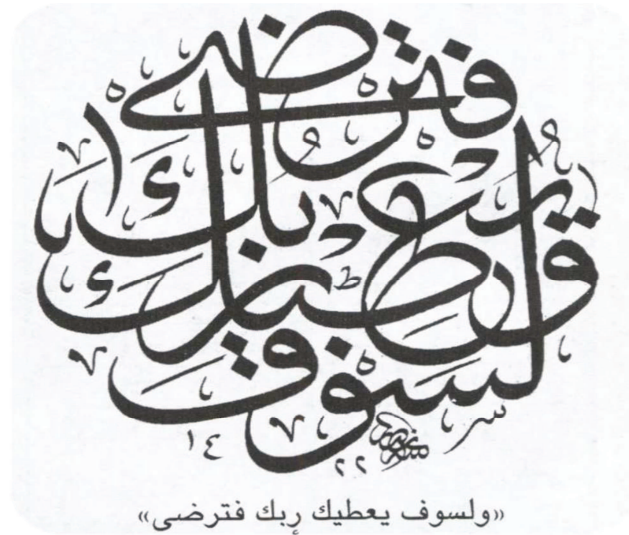 ولسوف يعطيك ربك فترضى
١٤٢٢
«ولسوف يعطيك ربك فترضى»